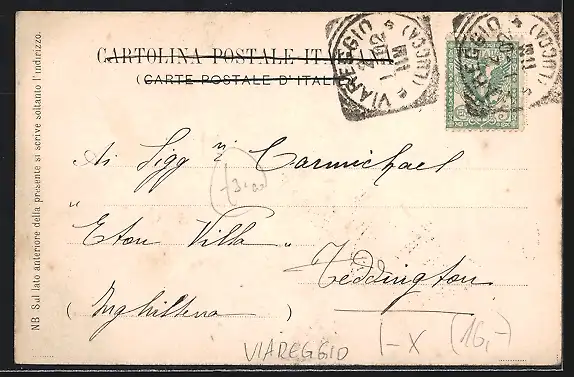 CARTOLINA POSTALE ITALIANA
(CARTE POSTALE D'ITALIE)
VIAREGGIO
(LUCCA)
VIAREGGIO
(LUCCA)
NB Sul lato anteriore della presente si scrive soltanto l'indirizzo.
Ai Sigg ri Carmichael
"Eton Villa"
Teddington
(Inghilterra)
VIAREGGIO I-X (16,-)